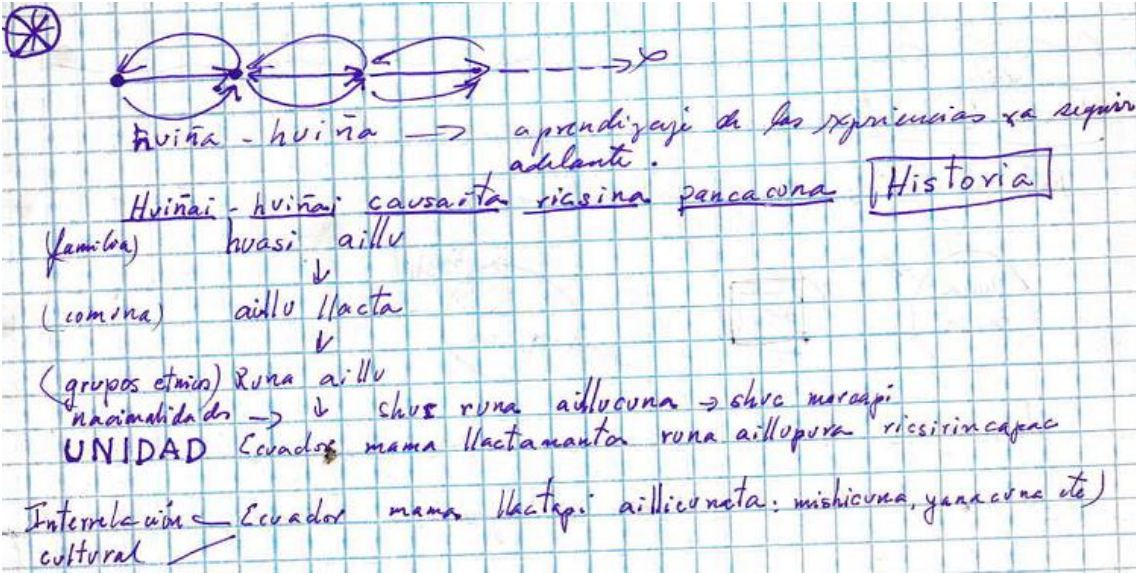 huiña - huiña → aprendizaje de las experiencias xa seguir
adelante.
Huiñai - huiñai causaita ricsina pancacuna Historia
(familia) huasi aillu
↓
(comuna) aillu llacta
↓
(grupos etnicos) Runa aillu
nacionalidades → ↓ shuc runa aillucuna → shuc marcapi
UNIDAD Ecuador mama llactamanta runa aillupura ricsirincapac
Interrelación Ecuador mama llactapi aillicunata: mishicuna, yanacuna etc)
cultural